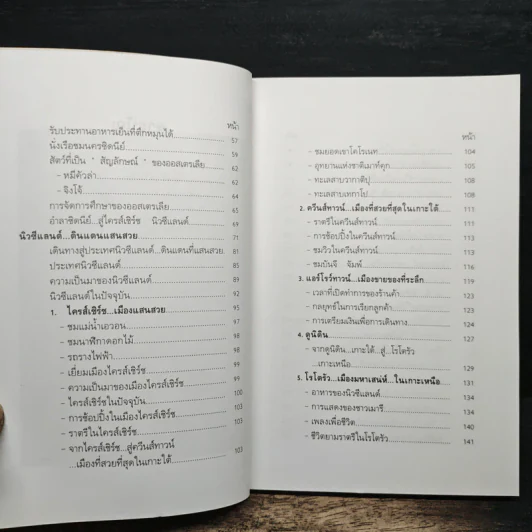 หน้า
รับประทานอาหารเย็นที่ตึกหมุนได้ 57
นั่งเรือชมนครซิดนีย์ 59
สัตว์ที่เป็น ' สัญลักษณ์ ' ของออสเตรเลีย 62
- หมีคัวล่า 62
- จิงโจ้ 63
การจัดการศึกษาของออสเตรเลีย 64
อำลาซิดนีย์...สู่ไครส์เชิร์ช นิวซีแลนด์ 69
นิวซีแลนด์...ดินแดนแสนสวย 71
เดินทางสู่ประเทศนิวซีแลนด์...ดินแดนที่แสนสวย 81
ประเทศนิวซีแลนด์ 85
ความเป็นมาของนิวซีแลนด์ 89
นิวซีแลนด์ในปัจจุบัน 92
1. ไครส์เชิร์ช...เมืองแสนสวย 95
- ชมแม่น้ำเอวอน 98
- ชมนาฬิกาดอกไม้ 98
- รถรางไฟฟ้า 98
- เยี่ยมเมืองไครส์เชิร์ช 99
- ความเป็นมาของเมืองไครส์เชิร์ช 99
- ไครส์เชิร์ชในปัจจุบัน 100
- การช้อปปิ้งในเมืองไครส์เชิร์ช 103
- ราตรีในไครส์เชิร์ช
- จากไครส์เชิร์ช...สู่ควีนส์ทาวน์
...เมืองที่สวยที่สุดในเกาะใต้ 103
หน้า
- ชมยอดเขาโคโรเนท 104
- อุทยานแห่งชาติเมาท์คุก 106
- ทะเลสาบวากาติปุ 108
- ทะเลสาบเทกาโป 108
2. ควีนส์ทาวน์...เมืองที่สวยที่สุดในเกาะใต้ 111
- ราตรีในควีนส์ทาวน์ 114
- การช้อปปิ้งในควีนส์ทาวน์ 114
- ชมวิวในควีนส์ทาวน์
- ชมบันจี จัมพ์ 119
3. แอร์โรว์ทาวน์...เมืองขายของที่ระลึก 121
- เวลาที่เปิดทำการของร้านค้า 123
- กลยุทธ์ในการเรียกลูกค้า 124
- การเตรียมเงินเพื่อการเดินทาง 124
4. ดูนิดิน 127
- จากดูนิดิน...เกาะใต้...สู่...โรโตรัว
...เกาะเหนือ 129
5. โรโตรัว...เมืองมหาเสน่ห์...ในเกาะเหนือ 131
- อาหารของนิวซีแลนด์ 134
- การแสดงของชาวเมารี 134
- เพลงเพื่อชีวิต 140
- ชีวิตยามราตรีในโรโตรัว 141